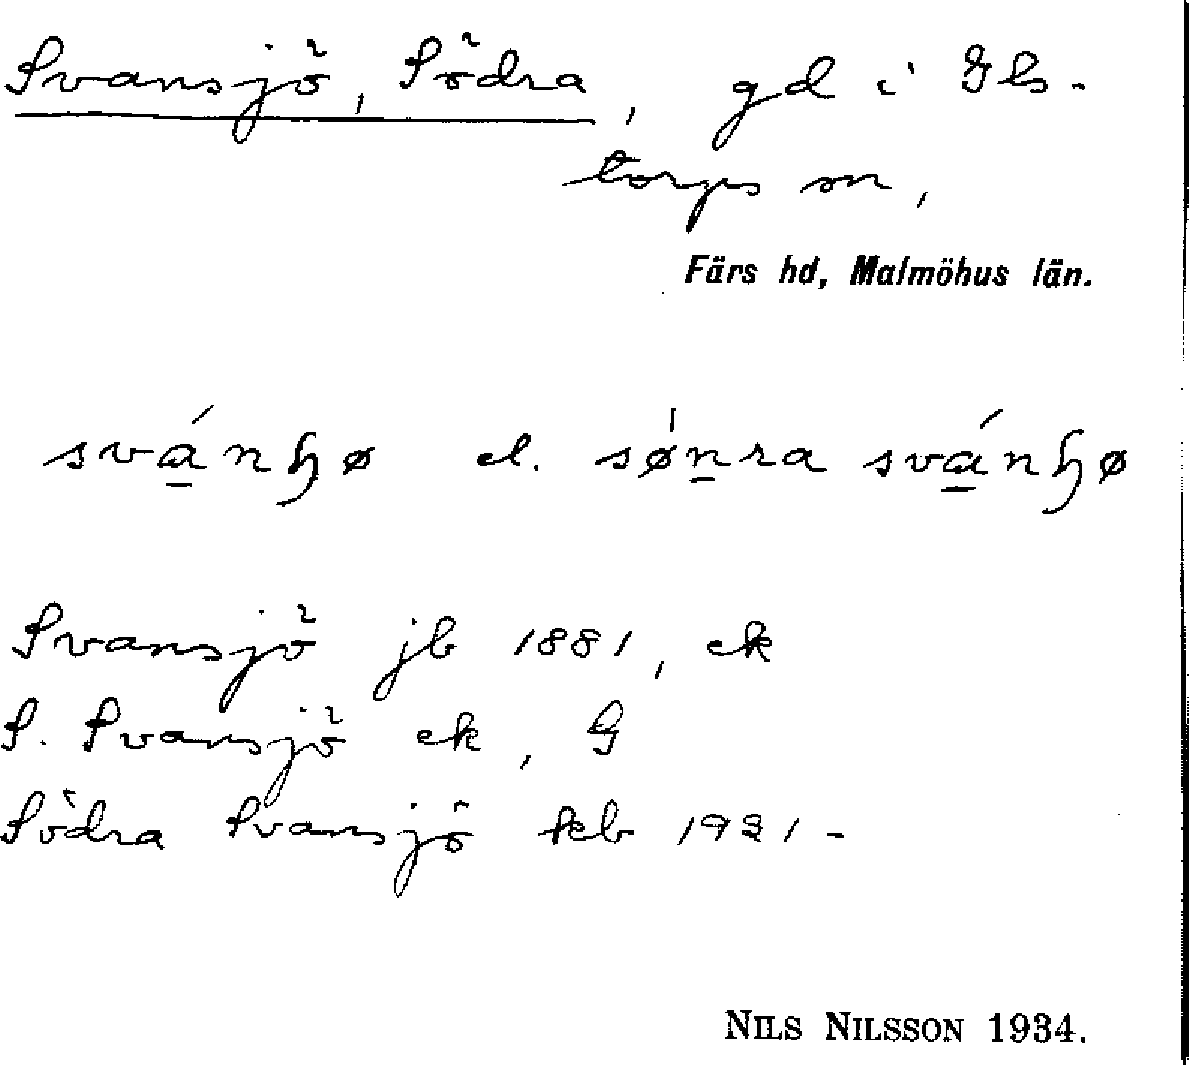 Svansjö, Södra, gd i Ils-
torps sn,
Färs hd, Malmöhus län.
svánꜧø el. sǿnra svánꜧø
Svansjö jb 1881, ek
S. Svansjö ek, G
Södra Svansjö kb 1931-
NILS NILSSON 1934.